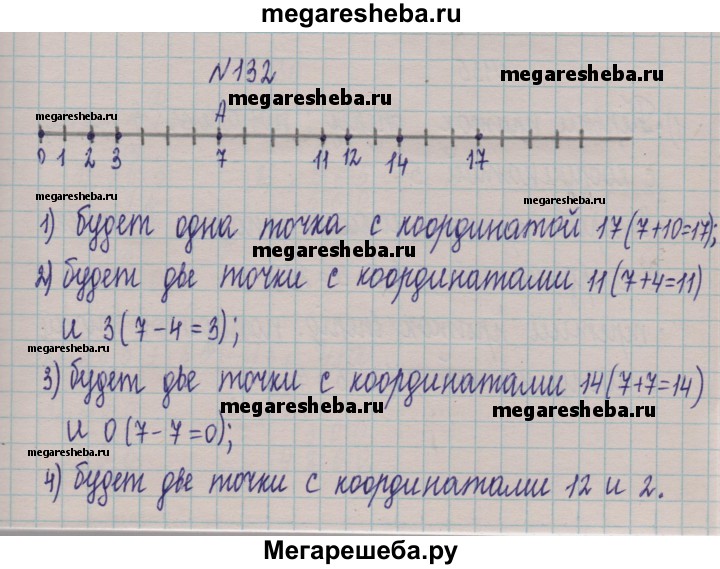 megaresheba.ru
№132
megaresheba.ru
megaresheba.ru
megaresheba.ru
A
0 1 2 3 7 11 12 14 17
megaresheba.ru
megaresheba.ru
1) будет одна точка с координатой 17(7+10=17);
megaresheba.ru
2) будет две точки с координатами 11(7+4=11)
и 3(7-4=3);
megaresheba.ru
3) будет две точки с координатами 14(7+7=14)
megaresheba.ru
megaresheba.ru
и 0(7-7=0);
megaresheba.ru
4) будет две точки с координатами 12 и 2.
Мегарешеба.ру